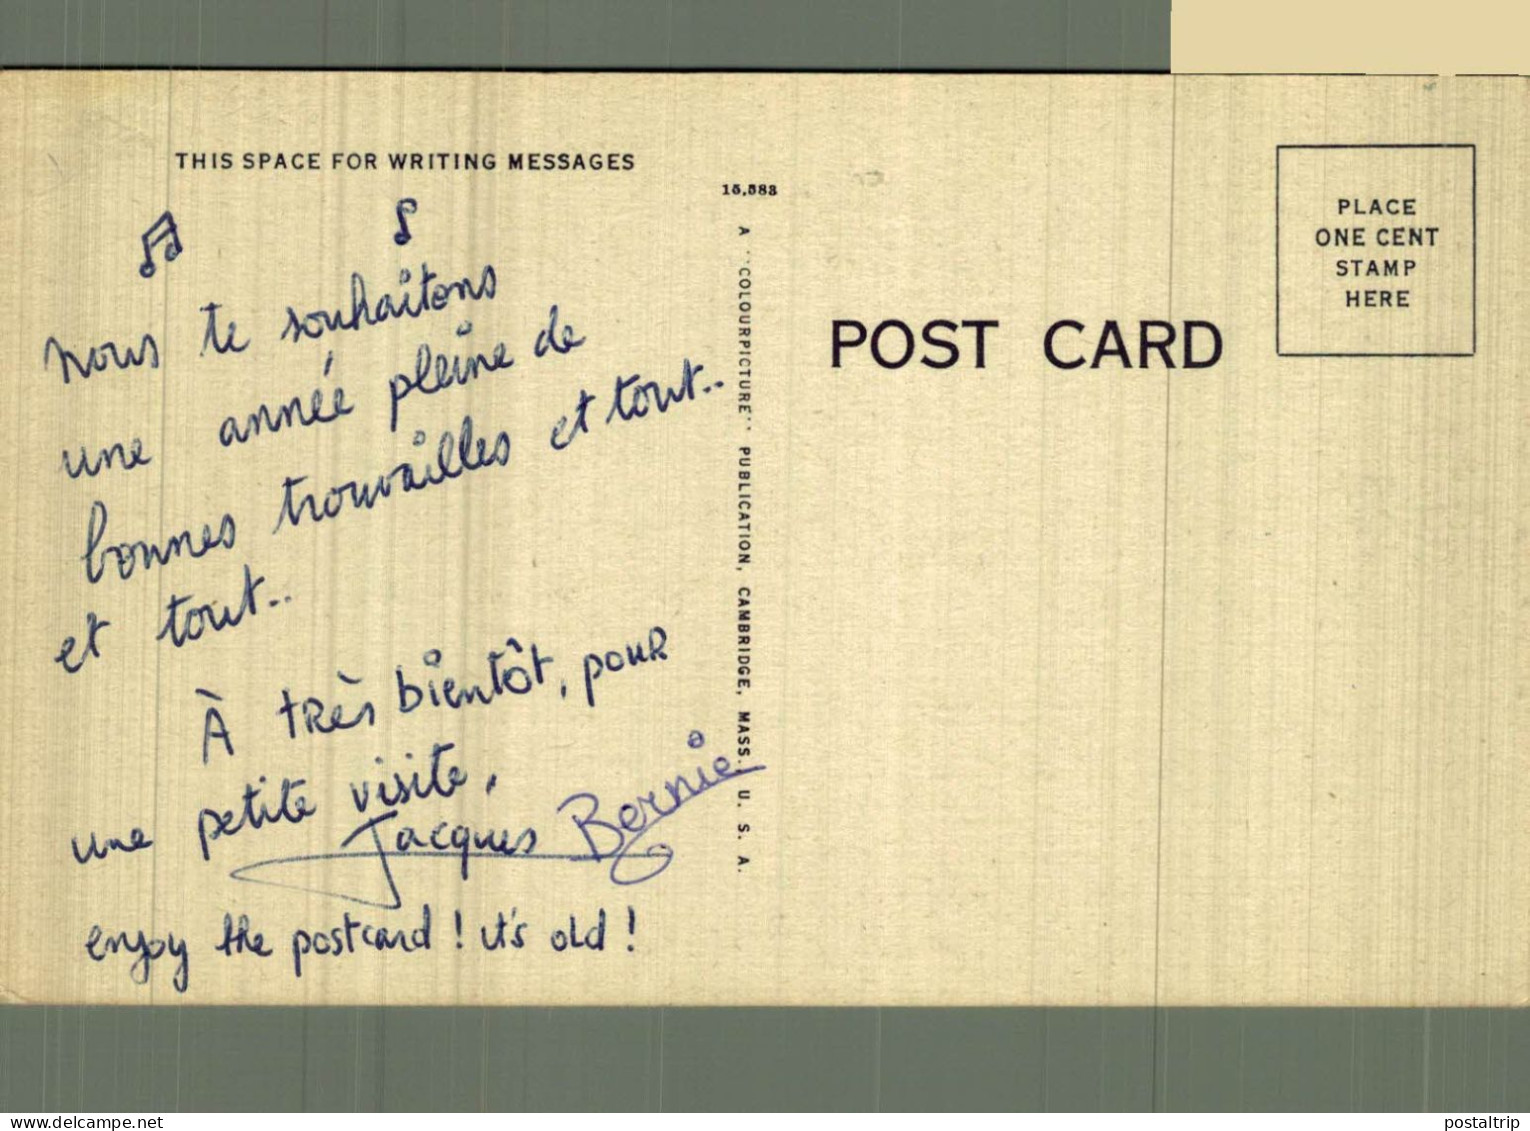 THIS SPACE FOR WRITING MESSAGES
nous te souhaitons
une année pleine de
bonnes trouvailles et tout..
et tout..
À très bientôt, pour
une petite visite,
Jacques Bernie
enjoy the postcard! it's old!
15,583
A "COLOURPICTURE" PUBLICATION, CAMBRIDGE, MASS. U. S. A.
POST CARD
PLACE
ONE CENT
STAMP
HERE
delcampe.net
postaltrip